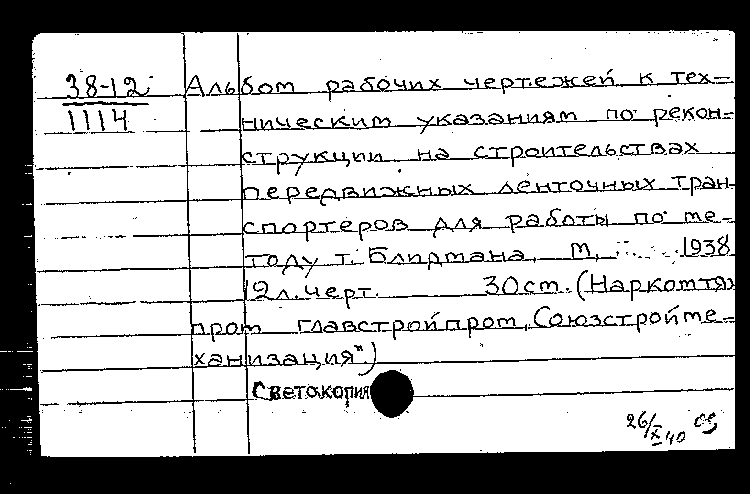 38-12
1114
Альбом рабочих чертежей к тех=
ническим указаниям по рекон=
струкции на строительствах
передвижных ленточных тран-
спортеров для работы по ме-
тоду т. Блидмана. М, 1938
12л. черт. 30 ст. (Наркомтяж
пром главстройпром, Союзстройме-
ханизация")
Светокопия
26/X 40